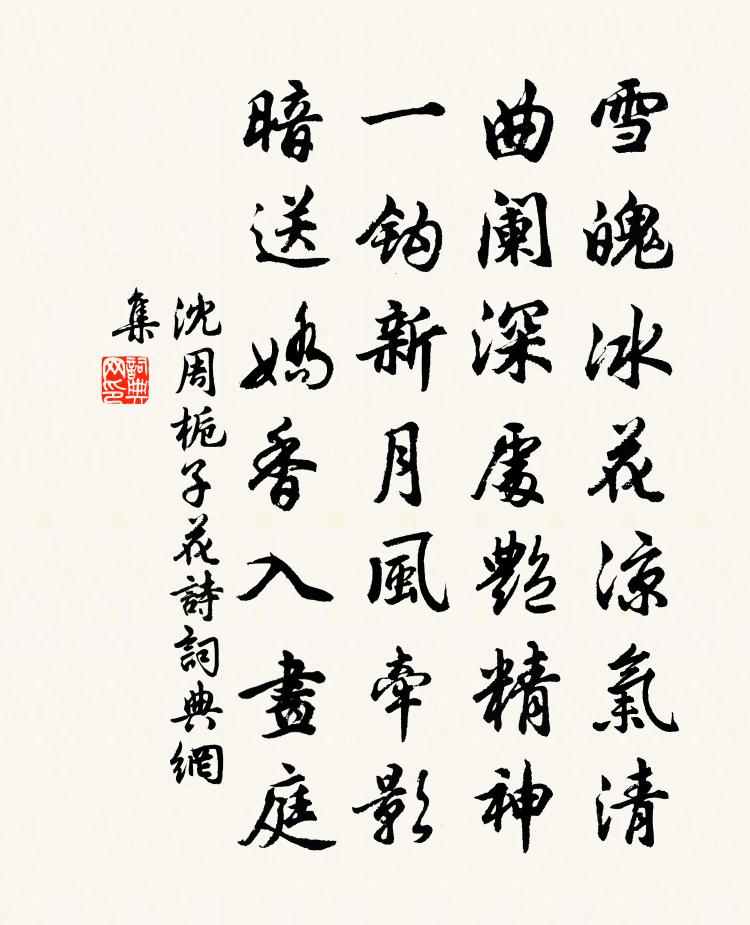 雪魄冰花凉氣清
曲闌深處艷精神
一鈎新月風牽影
暗送嬌香入畫庭
沈周梔子花詩詞典網
集
詞典網印